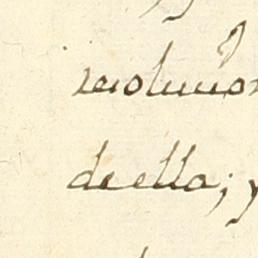 resolucion
deella; y